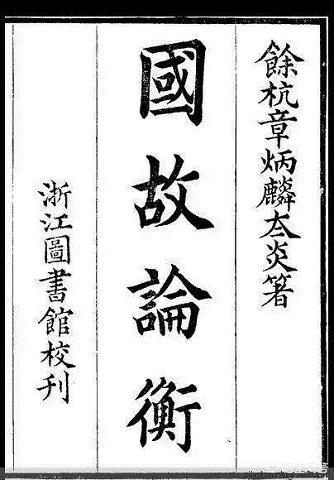 餘杭章炳麟太炎箸
國故論衡
浙江圖書館校刊